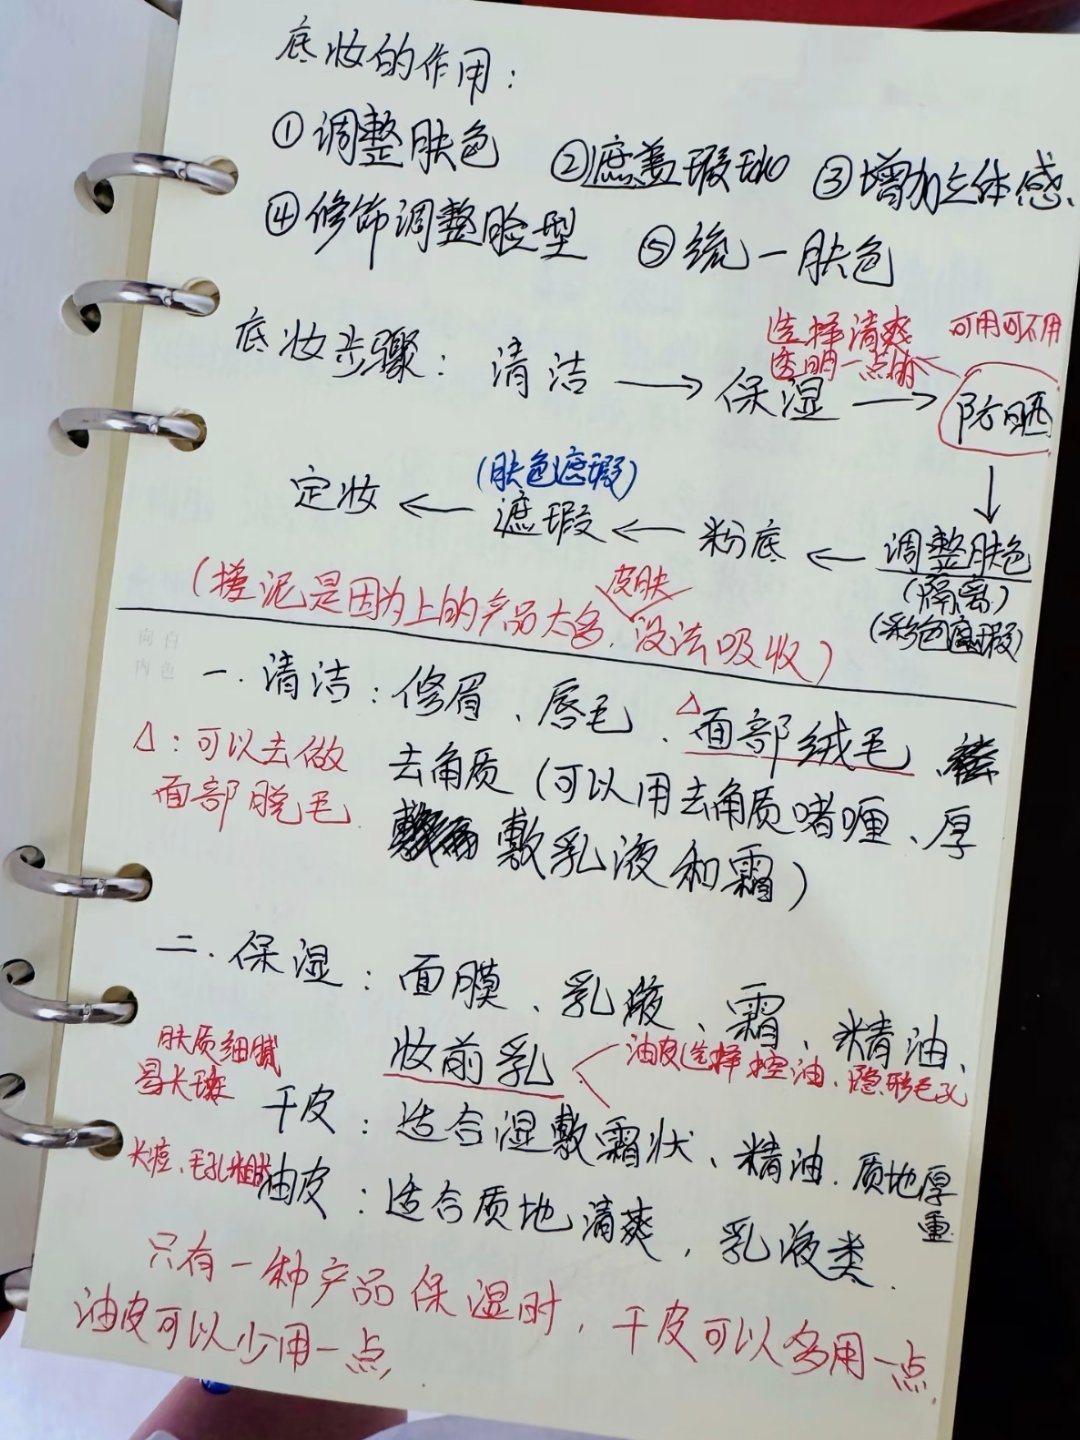 底妆的作用：
①调整肤色 ②遮盖瑕疵 ③增加立体感、
④修饰调整脸型 ⑤统一肤色
选择清爽 可用可不用
透明一点的
底妆步骤：清洁 → 保湿 → 防晒
(肤色遮瑕)
定妆 ← 遮瑕 ← 粉底 ← 调整肤色
(隔离)
(彩色遮瑕)
皮肤
(搓泥是因为上的产品太多,没法吸收)
一.清洁：修眉、唇毛、△面部绒毛、
△：可以去做 去角质(可以用去角质啫喱、厚
面部脱毛 敷乳液和霜)
二.保湿：面膜、乳液、霜、精油、
妆前乳 油皮选择控油、隐形毛孔
肤质细腻
易长斑
干皮：适合湿敷霜状、精油.质地厚重
长痘、毛孔粗大
油皮：适合质地清爽,乳液类.
只有一种产品保湿时,干皮可以多用一点,
油皮可以少用一点